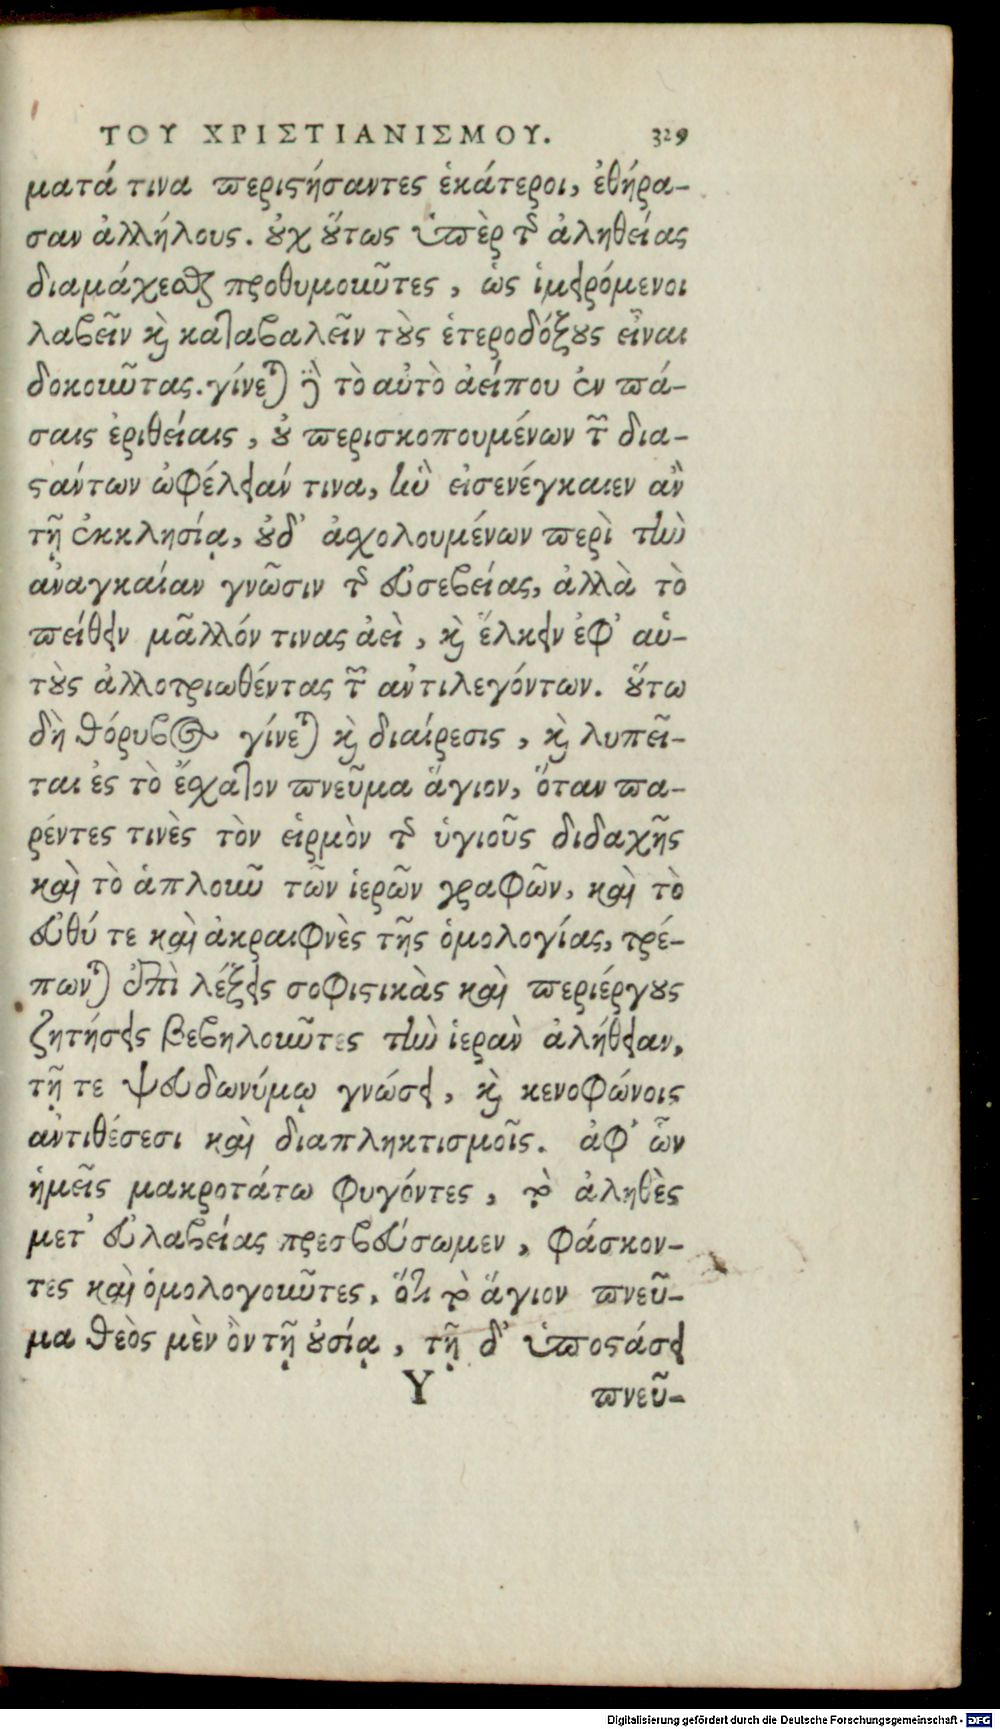 ΤΟΥ ΧΡΙΣΤΙΑΝΙΣΜΟΥ. 329
ματά τινα περιστήσαντες ἑκάτεροι, ἐθήρα-
σαν ἀλλήλους. οὐχ οὕτως ὑπὲρ τῆς ἀληθείας
διαμάχεσθαι προθυμοῦντες, ὡς ἱμειρόμενοι
λαβεῖν καὶ καταβαλεῖν τοὺς ἑτεροδόξους εἶναι
δοκοῦντας. γίνεται γὰρ τὸ αὐτὸ ἀείπου ἐν πά-
σαις ἐριθείαις, οὐ περισκοπουμένων τῶν δια-
στάντων ὠφέλειάν τινα, ἣν εἰσενέγκαιεν ἂν
τῇ ἐκκλησίᾳ, οὐδ' ἀσχολουμένων περὶ τὴν
ἀναγκαίαν γνῶσιν τῆς εὐσεβείας, ἀλλὰ τὸ
πείθειν μᾶλλόν τινας ἀεὶ, καὶ ἕλκειν ἐφ' αὑ-
τοὺς ἀλλοτριωθέντας τῶν ἀντιλεγόντων. οὕτω
δὴ θόρυβος γίνεται καὶ διαίρεσις, καὶ λυπεῖ-
ται ἐς τὸ ἔσχατον πνεῦμα ἅγιον, ὅταν πα-
ρέντες τινὲς τὸν εἱρμὸν τῆς ὑγιοῦς διδαχῆς
καὶ τὸ ἁπλοῦν τῶν ἱερῶν γραφῶν, καὶ τὸ
εὐθύ τε καὶ ἀκραιφνὲς τῆς ὁμολογίας, τρέ-
πωνται ἐπὶ λέξεις σοφιστικὰς καὶ περιέργους
ζητήσεις βεβηλοῦντες τὴν ἱερὰν ἀλήθειαν,
τῇ τε ψευδωνύμῳ γνώσει, καὶ κενοφώνοις
ἀντιθέσεσι καὶ διαπληκτισμοῖς. ἀφ' ὧν
ἡμεῖς μακροτάτω φυγόντες, τὸ ἀληθὲς
μετ' εὐλαβείας πρεσβεύσωμεν, φάσκον-
τες καὶ ὁμολογοῦντες, ὅτι τὸ ἅγιον πνεῦ-
μα θεὸς μὲν ὂν τῇ οὐσίᾳ, τῇ δ' ὑποστάσει
Υ πνεῦ-
Digitalisierung gefördert durch die Deutsche Forschungsgemeinschaft - DFG